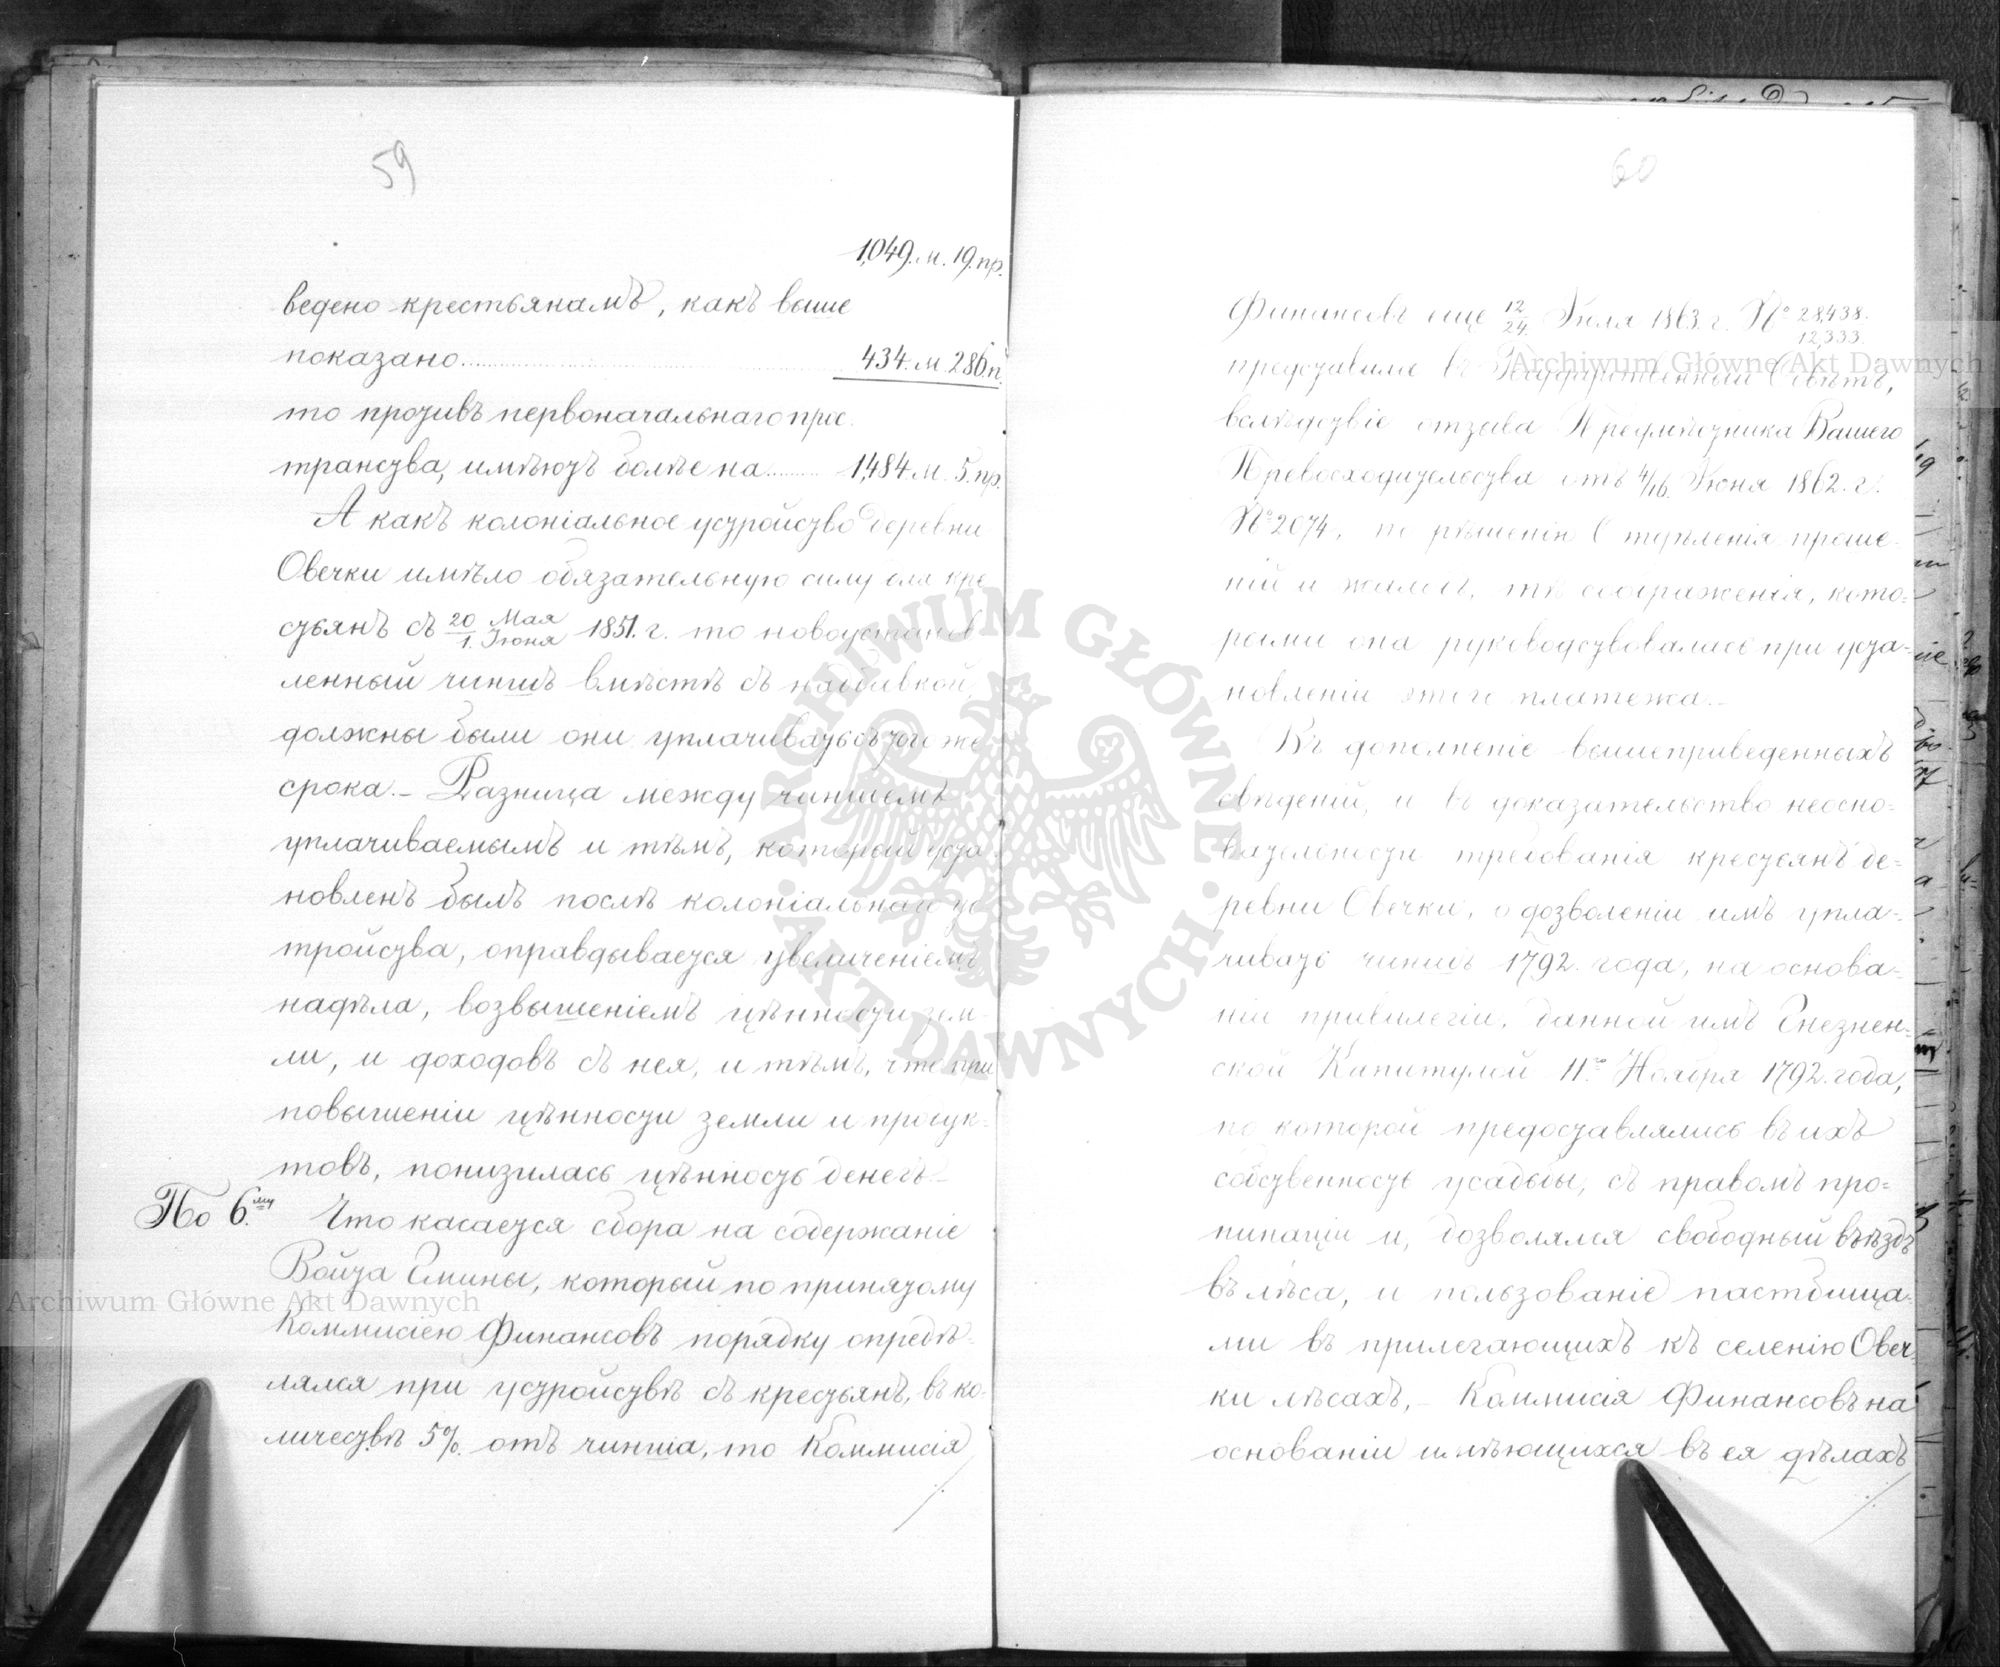 59
1,049. м. 19. пр.
ведено крестьянамъ, какъ выше
показано.......... 434. м. 286. п.
то противъ первоначальнаго прос
транства, имѣютъ болѣе на....... 1,484 м. 5. пр.
А какъ колоніальное устройство деревни
Овечки имѣло обязательную силу для кре
стьянъ съ 20 Мая / 1. Іюня 1851. г. то новоустанов
ленный чиншъ вмѣстѣ съ надбавкой,
должны были они уплачивать съ того же
срока. – Разница между чиншемъ
уплачиваемымъ и тѣмъ, который уста
новленъ былъ послѣ колоніальнаго ус
тройства, оправдывается увеличеніемъ
надѣла, возвышеніемъ цѣнности зем
ли, и доходовъ съ нея, и тѣмъ, что при
повышеніи цѣнности земли и продук-
товъ, понизилась цѣнность денегъ. –
По 6.му Что касается сбора на содержаніе
Войта Гмины, который по принятому
Коммисіею Финансовъ порядку опредѣ-
лялся при устройствѣ съ крестьянъ, въ ко-
личествѣ 5%. отъ чинша, то Коммисія
60
Финансовъ еще 12/24. Іюля 1863. г. № 28,438. / 12,333.
представила въ Государственный Совѣтъ,
вслѣдствіе отзыва Предмѣстника Вашего
Превосходительства отъ 4/16. Іюня 1862. г.
№ 2074, по рѣшенію Отдѣленія проше-
ній и жалобъ, тѣ соображенія, кото-
рыми она руководствовалась при уста-
новленіи этого платежа. –
Въ дополненіе вышеприведенныхъ
свѣденій, и въ доказательство неосно-
вательности требованія крестьянъ де-
ревни Овечки, о дозволеніи имъ упла-
чивать чиншъ 1792. года, на основа-
ніи привилегіи, данной имъ Гнезнен-
ской Капитулой 11.го Ноября 1792. года,
по которой предоставлялись въ ихъ
собственность усадьбы, съ правомъ про-
пинаціи и, дозволялся свободный въѣздъ
въ лѣса, и пользованіе пастбища-
ми въ прилегающихъ къ селенію Овеч-
ки лѣсахъ, – Коммисія Финансовъ на
основаніи имѣющихся въ ея дѣлахъ
Archiwum Główne Akt Dawnych
Archiwum Główne Akt Dawnych
ARCHIWUM GŁÓWNE · AKT DAWNYCH ·